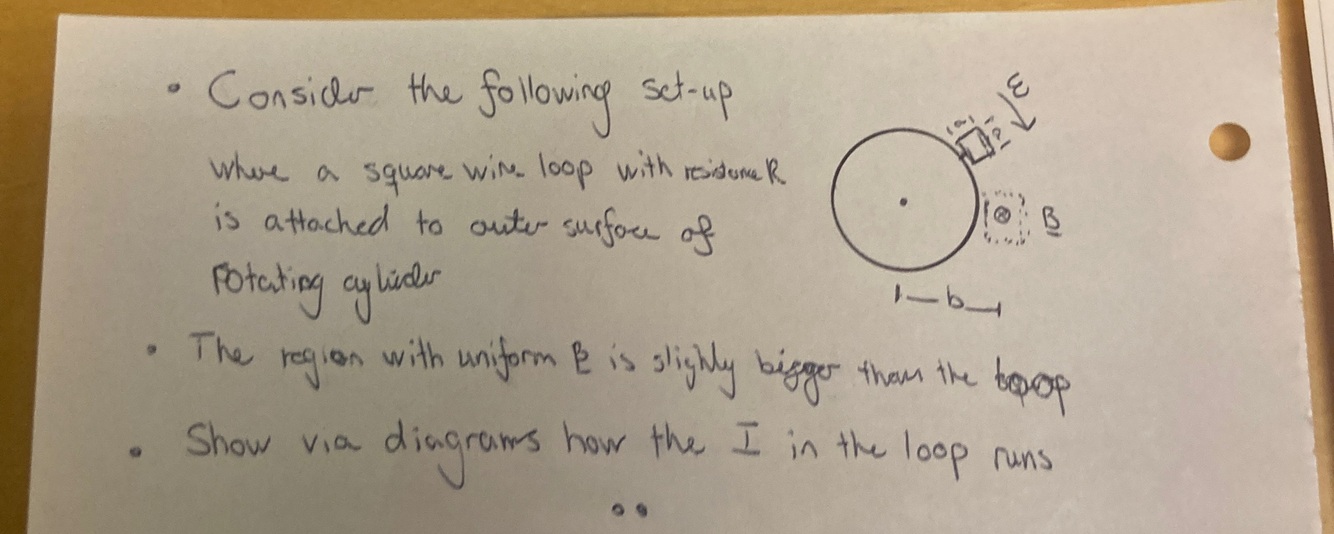 • Consider the following set-up
where a square wire loop with resistance R
is attached to outer surface of
rotating cylinder
ω
a
a
⊗ B
b
• The region with uniform B is slighly bigger than the loop
• Show via diagrams how the I in the loop runs